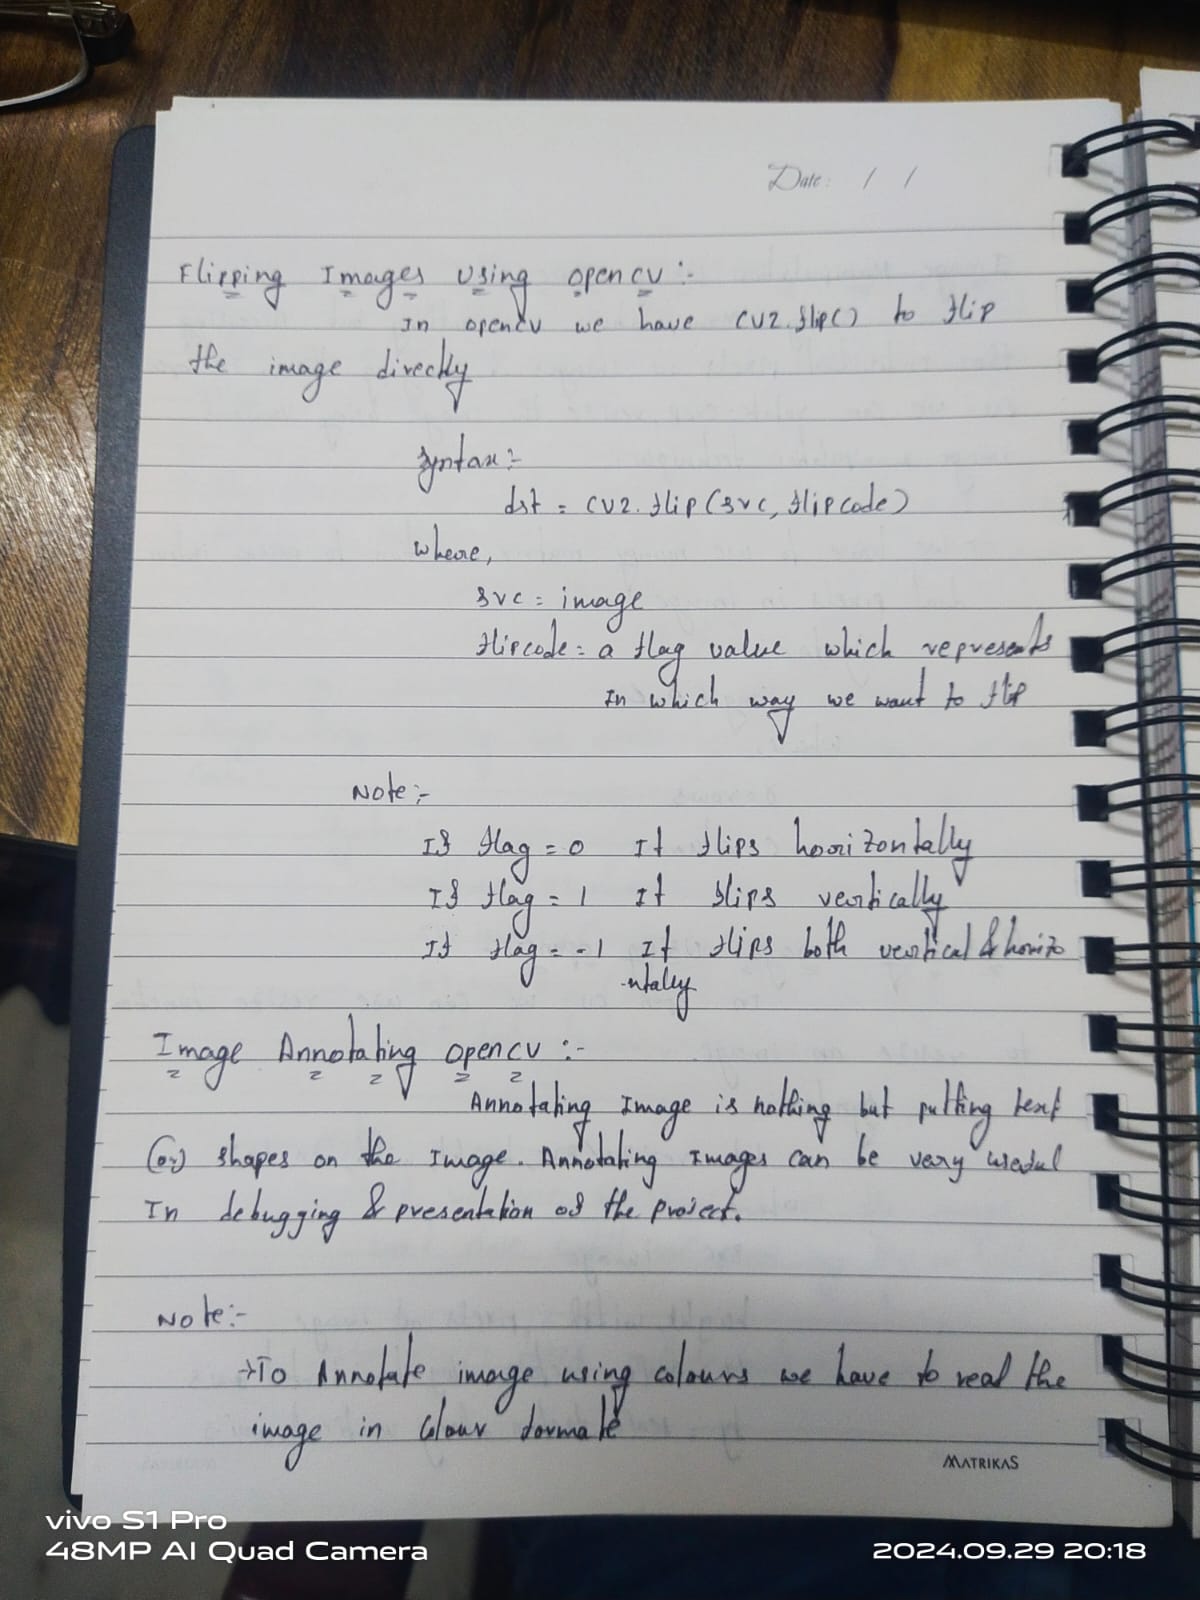 Date: / /
Flipping Images Using opencv :-
In opencv we have cv2.flip() to flip
the image directly
Syntax :-
dst = cv2.flip(src, flipcode)
where,
src = image
flipcode = a flag value which represents
In which way we want to flip
Note :-
If flag = 0 It flips horizontally
If flag = 1 It flips vertically
If flag = -1 It flips both vertical & horizo
ntally
Image Annotating opencv :-
Annotating Image is nothing but putting text
(or) shapes on the Image. Annotating Images can be very useful
In debugging & presentation of the project.
Note :-
→To Annotate image using colours we have to read the
image in colour formate
MATRIKAS
vivo S1 Pro
48MP AI Quad Camera
2024.09.29 20:18